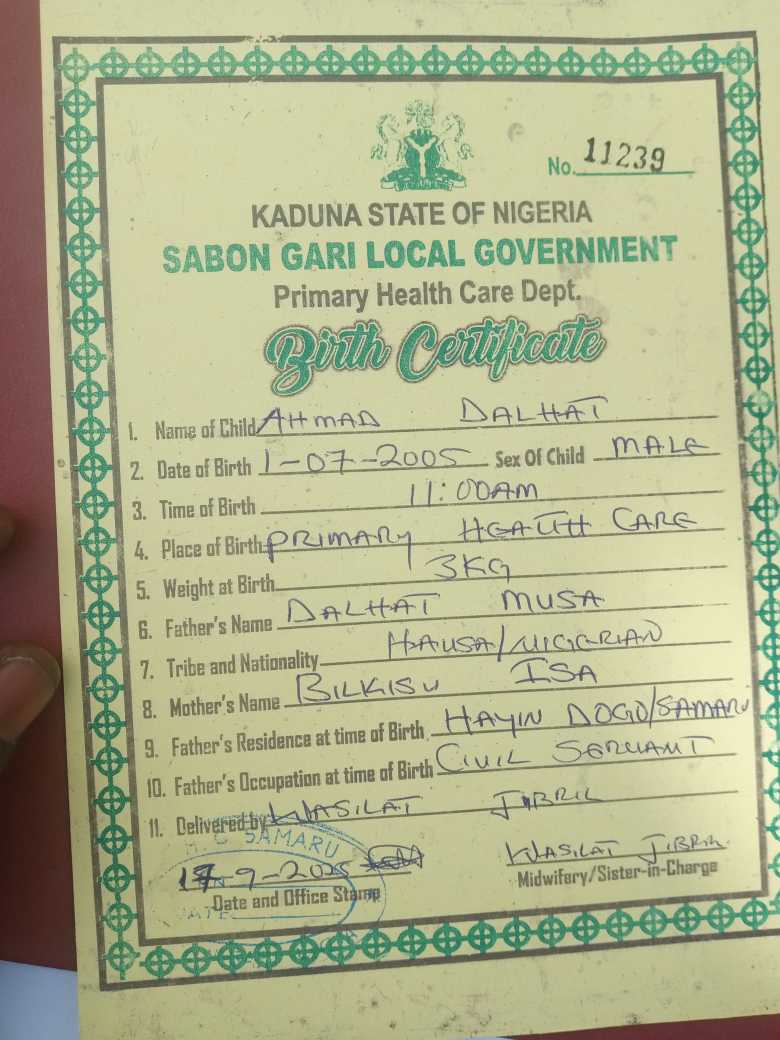 No. 11239
KADUNA STATE OF NIGERIA
SABON GARI LOCAL GOVERNMENT
Primary Health Care Dept.
Birth Certificate
1. Name of Child AHMAD DALHAT
2. Date of Birth 1-07-2005 Sex Of Child MALE
3. Time of Birth 11:00AM
4. Place of Birth PRIMARY HEALTH CARE
5. Weight at Birth 3KG
6. Father's Name DALHAT MUSA
7. Tribe and Nationality HAUSA/NIGERIAN
8. Mother's Name BILKISU ISA
9. Father's Residence at time of Birth HAYIN DOGO/SAMARU
10. Father's Occupation at time of Birth CIVIL SERVANT
11. Delivered by WASILAT JIBRIL
SAMARU
WASILAT JIBRIL
-9-
Date and Office Stamp
Midwifery/Sister-in-Charge
DATE